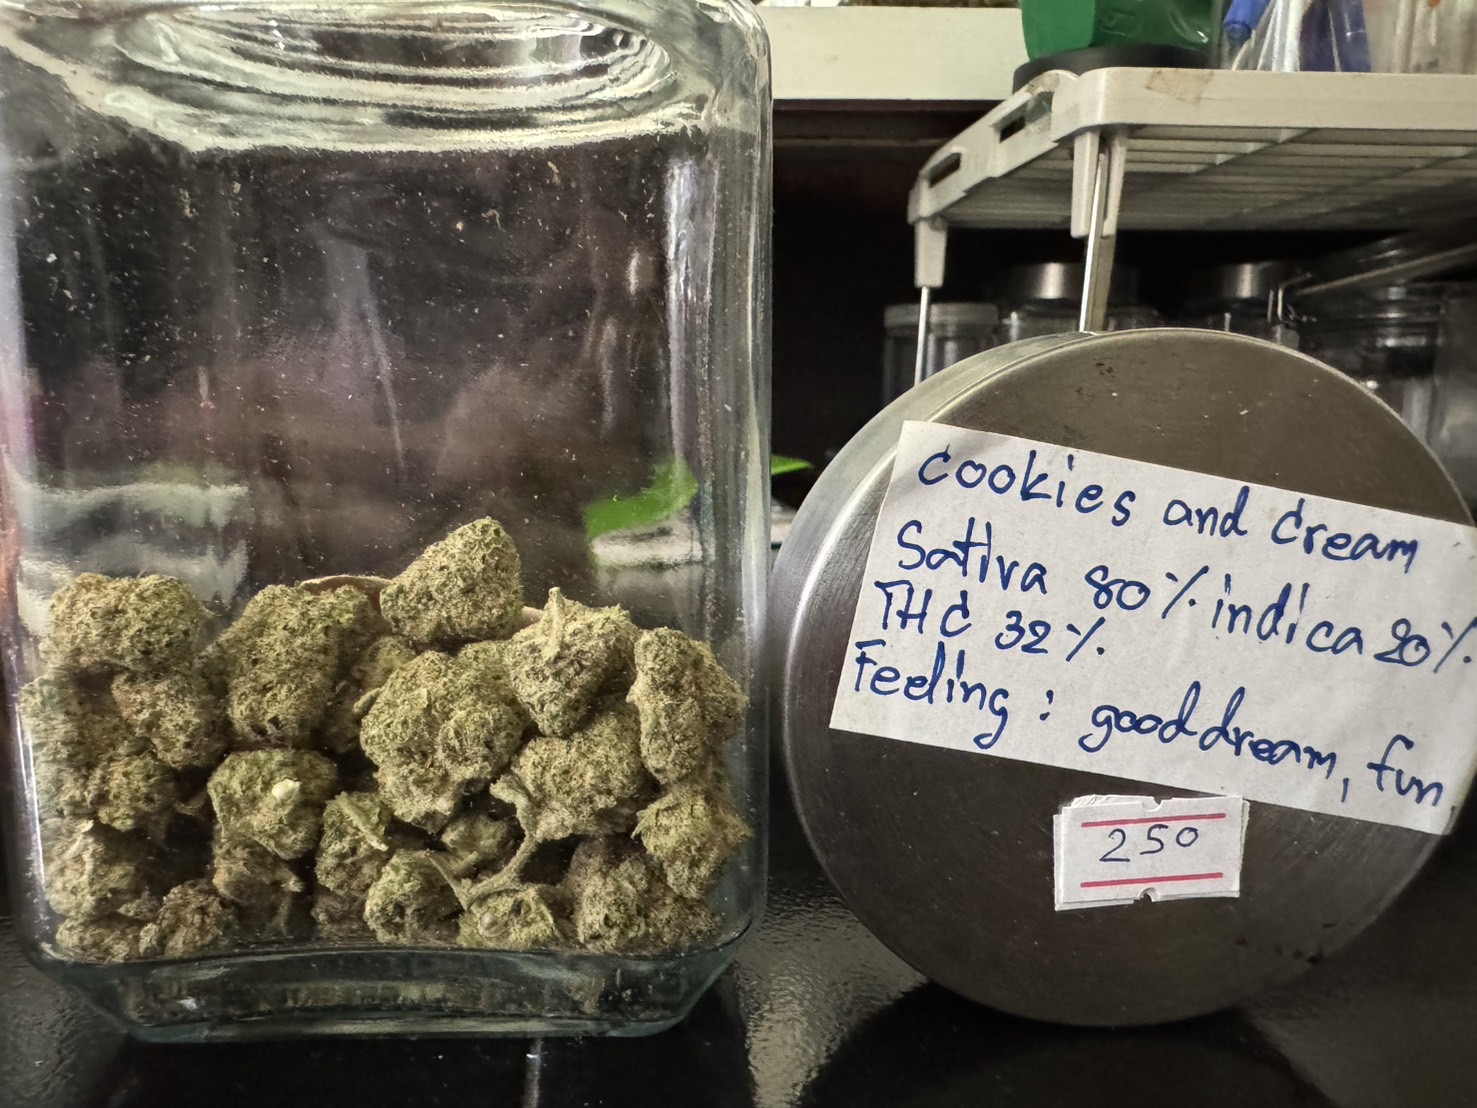 Cookies and Cream
Sativa 80% indica 20%
THC 32%
Feeling : good dream, fun
250